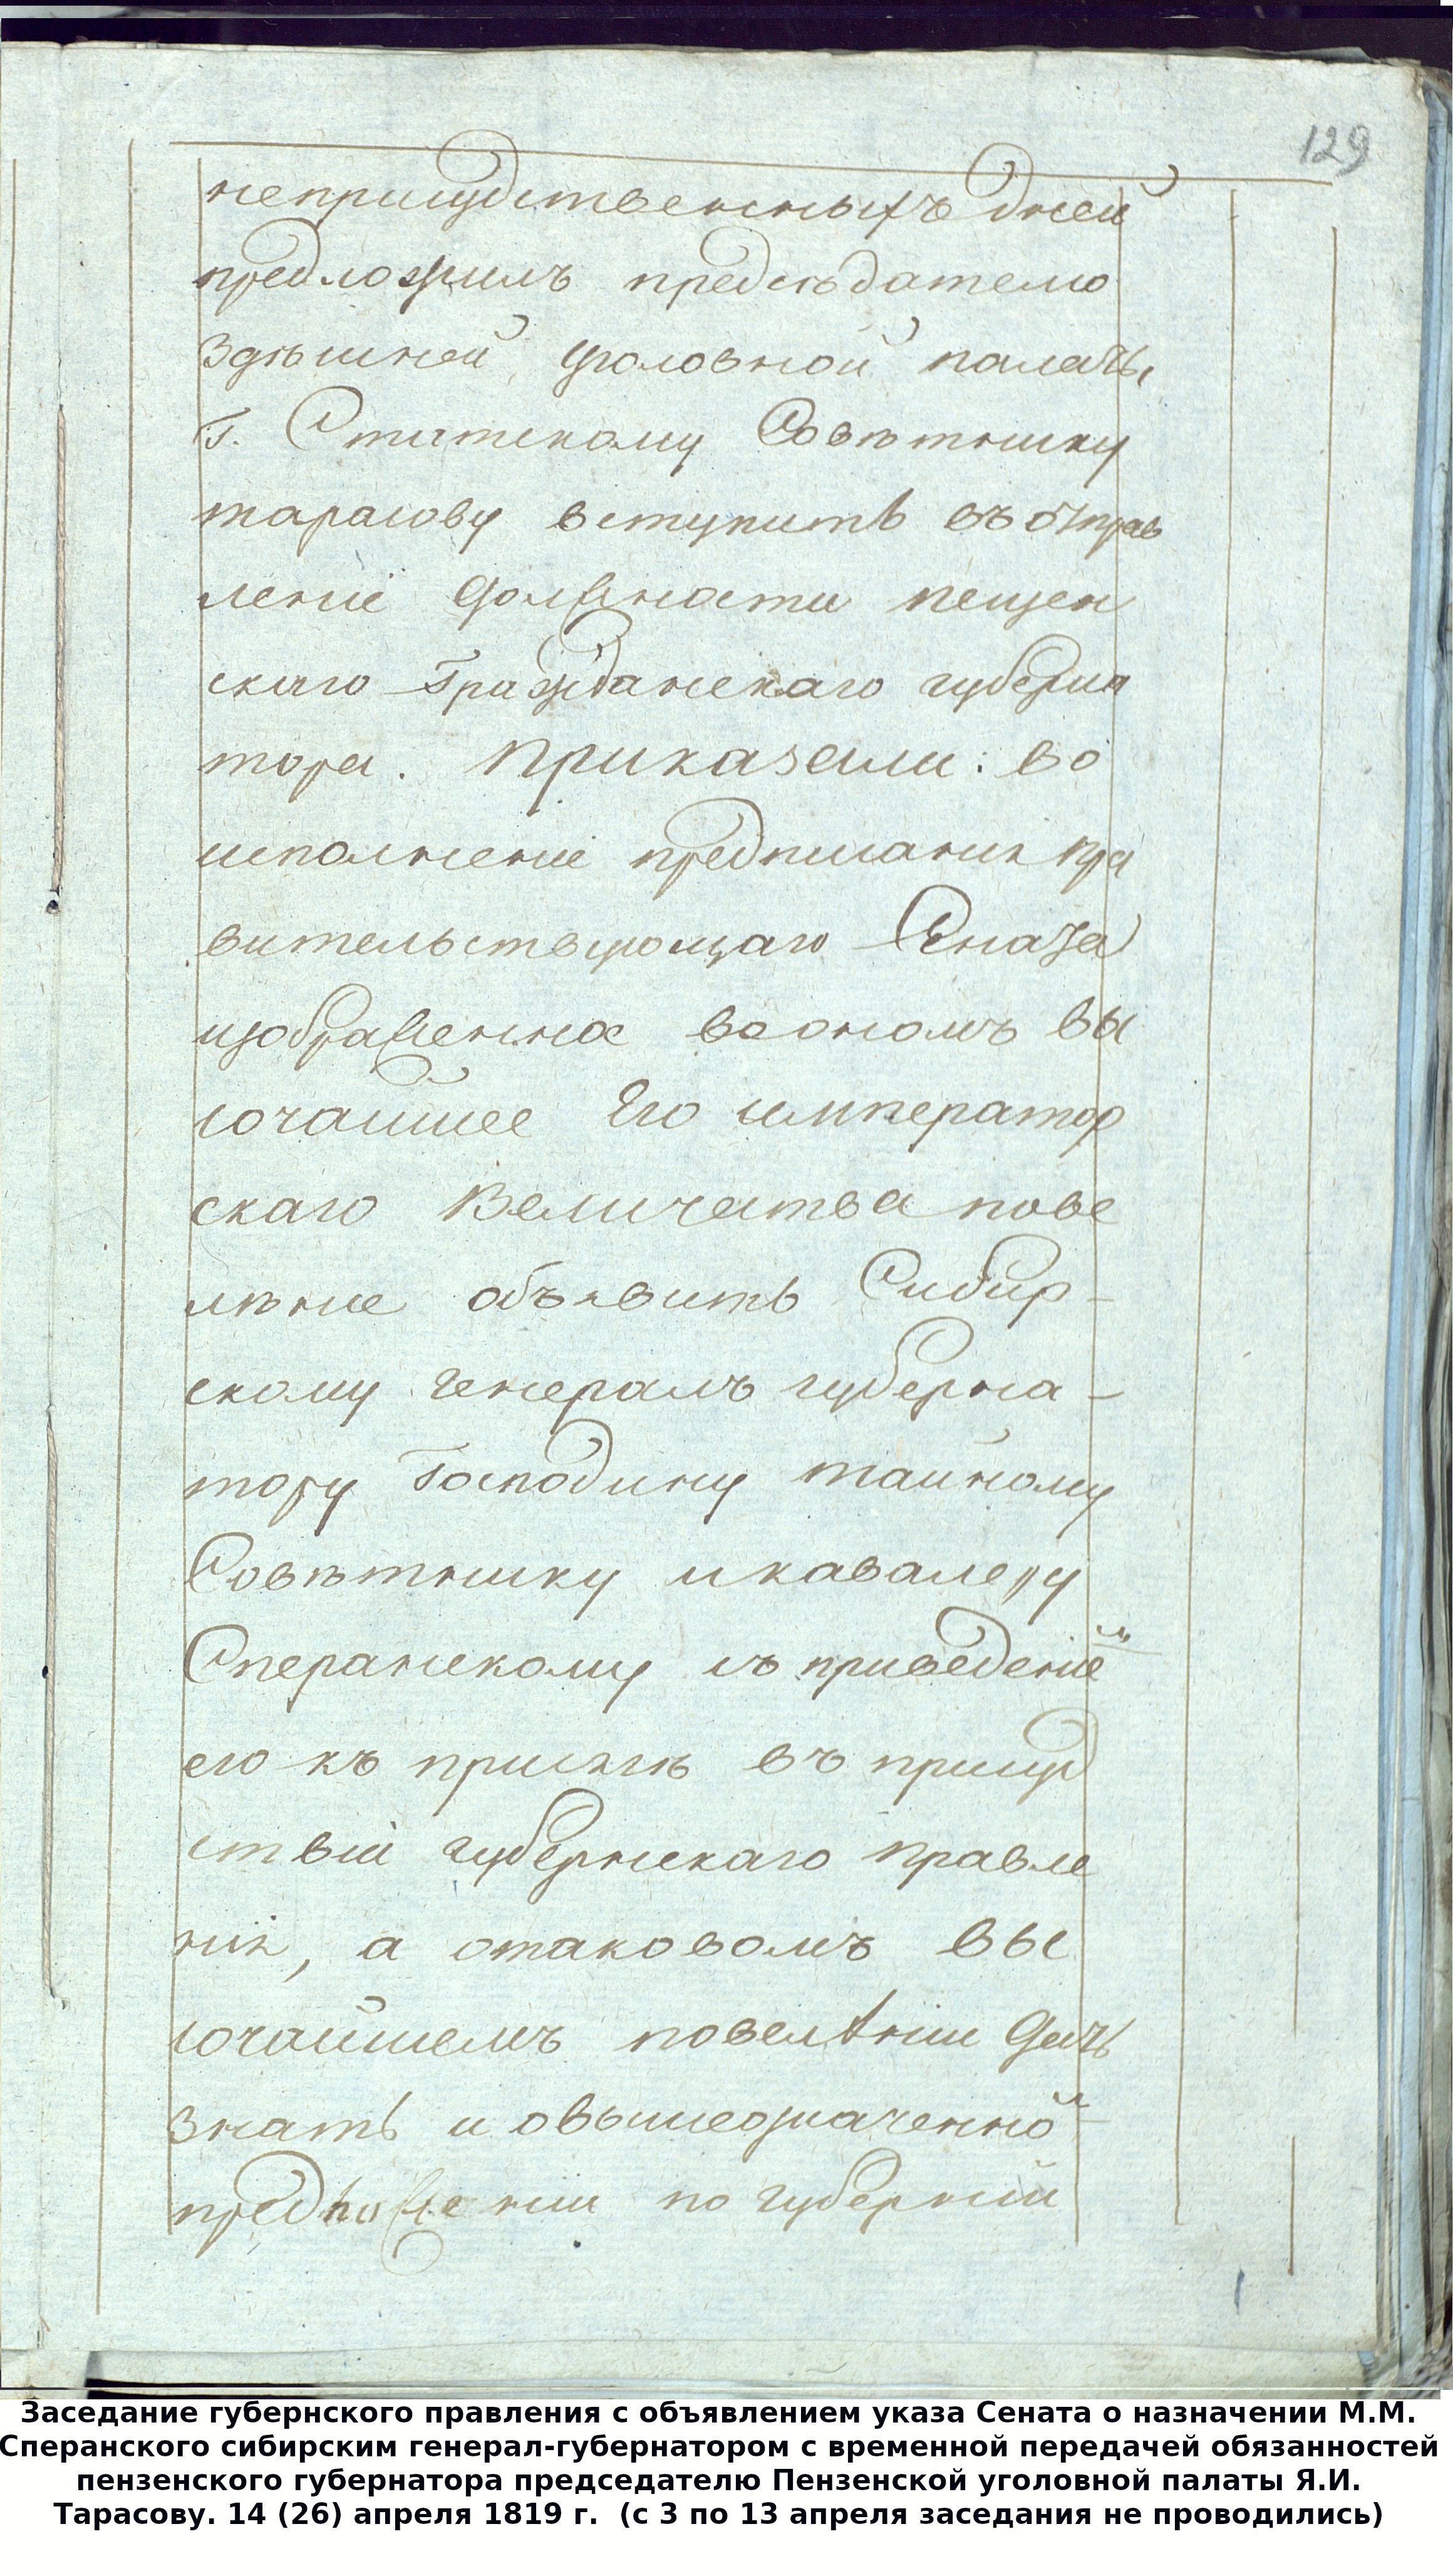 129
неприсудственныхъ дней
предложилъ предсѣдателю
здѣшней уголовной палаты
г. Статскому Совѣтнику
тарасову вступить въ отправ
леніе должности пензен
скаго Гражданскаго губерна
тора. Приказали: во
исполненіе предписания пра
вительствующаго Сената
изображенное во ономъ вы
сочайшее Его император
скаго Величества пове
лѣние объявить Сибир-
скому генералъ губерна-
тору Господину тайному
Совѣтнику и кавалеру
Сперанскому съ приведеніем
его къ присягѣ въ присуд
ствіи губернскаго правле
нія, а отаковомъ вы
сочайшемъ повелѣнии дать
знать и овышеозначенном
предложении по губерніи
Заседание губернского правления с объявлением указа Сената о назначении М.М.
Сперанского сибирским генерал-губернатором с временной передачей обязанностей
пензенского губернатора председателю Пензенской уголовной палаты Я.И.
Тарасову. 14 (26) апреля 1819 г. (с 3 по 13 апреля заседания не проводились)